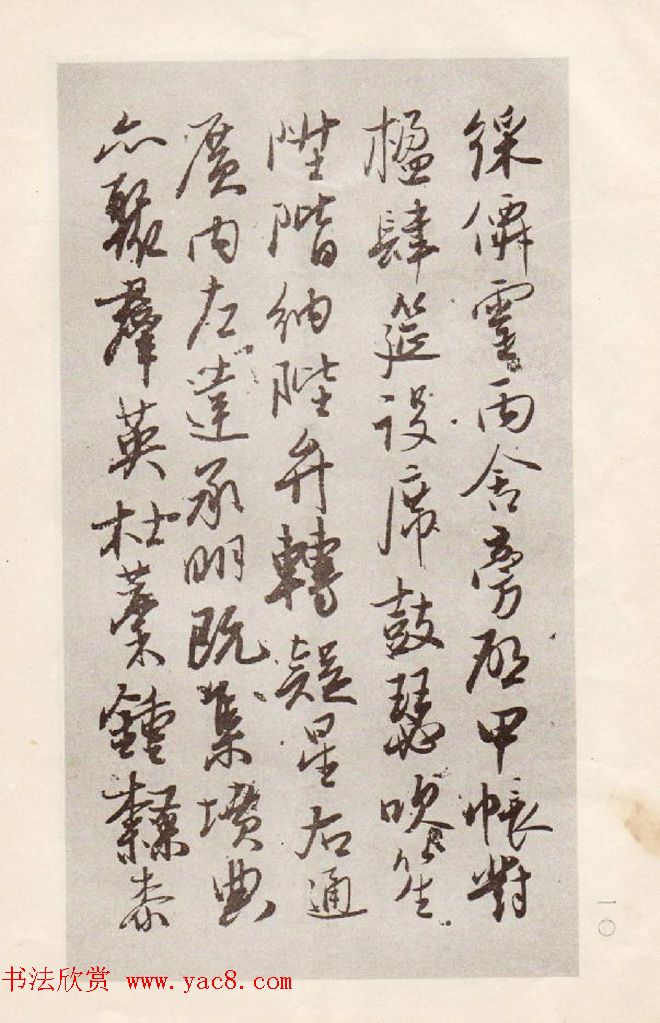 綵僊靈丙舍旁啓甲帳對
楹肆筵設席鼓瑟吹笙
陞階納陛弁轉疑星右通
廣內左達承明既集墳典
亦聚羣英杜藁鍾隸桼
一〇
书法欣赏 www.yac8.com